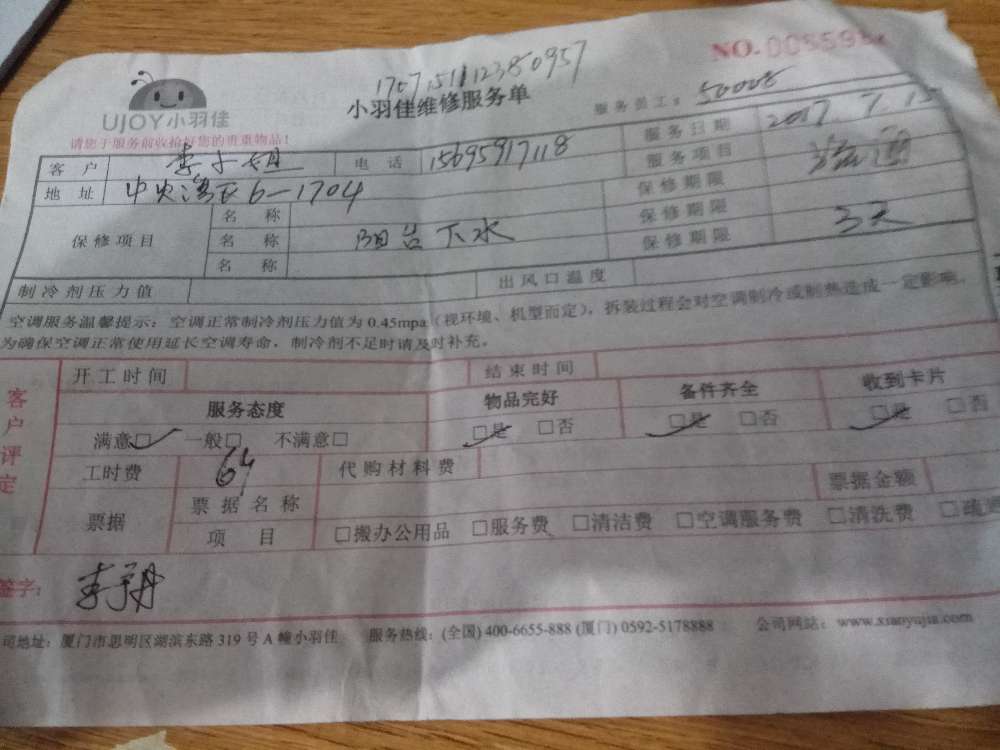 NO.
1707151112380957
UJOY小羽佳
小羽佳维修服务单
服务员工：50008
请您于服务前收拾好您的贵重物品！
客户 李小姐 电话 15695917118 服务日期 2017.7.15
地址 中央湾区6-1704 服务项目 疏通
保修项目
名称 保修期限
名称 阳台下水 保修期限 3天
名称 保修期限
制冷剂压力值 出风口温度
空调服务温馨提示：空调正常制冷剂压力值为0.45mpa（视环境、机型而定），拆装过程会对空调制冷或制热造成一定影响，
为确保空调正常使用延长空调寿命，制冷剂不足时请及时补充。
客户评定
开工时间 结束时间
服务态度 物品完好 备件齐全 收到卡片
满意□ 一般□ 不满意□ □是 □否 □是 □否 □是 □否
工时费 64 代购材料费
票据 票据名称 票据金额
项目 □搬办公用品 □服务费 □清洁费 □空调服务费 □清洗费 □疏通
签字：
司地址：厦门市思明区湖滨东路319号A幢小羽佳 服务热线：(全国) 400-6655-888 (厦门) 0592-5178888 公司网站：www.xiaoyujia.com